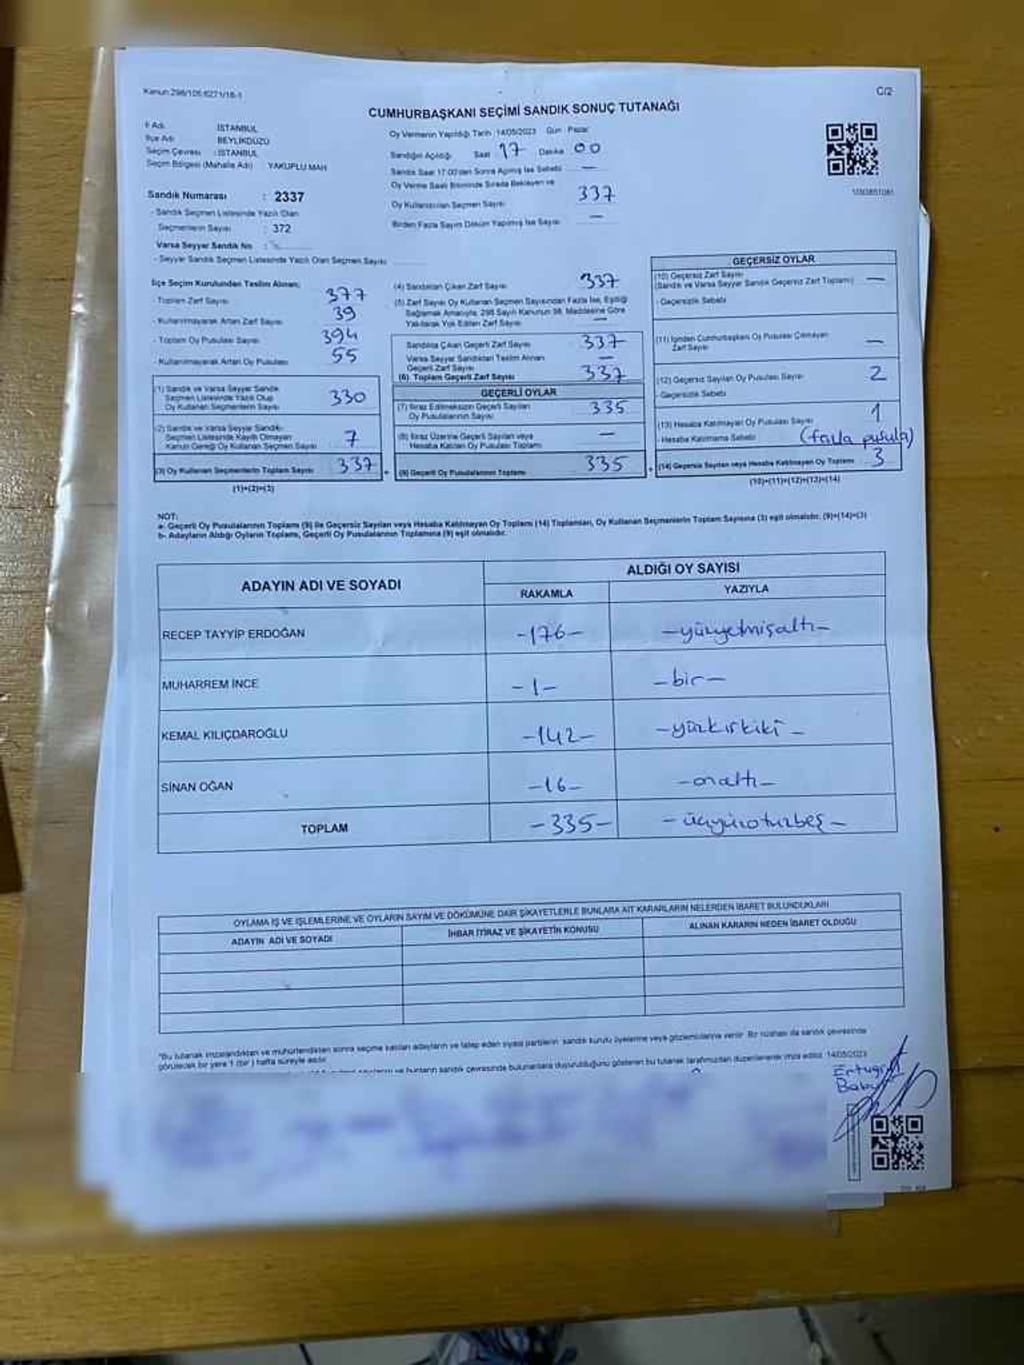 Kanun:298/105.6271/18-1
C/2
CUMHURBAŞKANI SEÇİMİ SANDIK SONUÇ TUTANAĞI
İl Adı : İSTANBUL
İlçe Adı : BEYLİKDÜZÜ
Seçim Çevresi : İSTANBUL
Seçim Bölgesi (Mahalle Adı) YAKUPLU MAH
Sandık Numarası : 2337
- Sandık Seçmen Listesinde Yazılı Olan
Seçmenlerin Sayısı : 372
Varsa Seyyar Sandık No :
- Seyyar Sandık Seçmen Listesinde Yazılı Olan Seçmen Sayısı
Oy Vermenin Yapıldığı Tarih 14/05/2023 Gün Pazar
Sandığın Açıldığı Saat 17 Dakika 00
Sandık Saat 17.00'den Sonra Açılmış İse Sebebi —
Oy Verme Saati Bitiminde Sırada Bekleyen ve
Oy Kullandırılan Seçmen Sayısı 337
Birden Fazla Sayım Döküm Yapılmış İse Sayısı —
İlçe Seçim Kurulundan Teslim Alınan;
- Toplam Zarf Sayısı 377
- Kullanılmayarak Artan Zarf Sayısı 39
- Toplam Oy Pusulası Sayısı 394
- Kullanılmayarak Artan Oy Pusulası 55
(1) Sandık ve Varsa Seyyar Sandık
Seçmen Listesinde Yazılı Olup
Oy Kullanan Seçmenlerin Sayısı 330
(2) Sandık ve Varsa Seyyar Sandık
Seçmen Listesinde Kayıtlı Olmayan
Kanun Gereği Oy Kullanan Seçmen Sayısı 7
(3) Oy Kullanan Seçmenlerin Toplam Sayısı 337
(1)+(2)=(3)
(4) Sandıktan Çıkan Zarf Sayısı 337
(5) Zarf Sayısı Oy Kullanan Seçmen Sayısından Fazla İse, Eşitliği
Sağlamak Amacıyla, 298 Sayılı Kanunun 98. Maddesine Göre
Yakılarak Yok Edilen Zarf Sayısı —
Sandıkta Çıkan Geçerli Zarf Sayısı 337
Varsa Seyyar Sandıktan Teslim Alınan
Geçerli Zarf Sayısı —
(6) Toplam Geçerli Zarf Sayısı 337
GEÇERLİ OYLAR
(7) İtiraz Edilmeksizin Geçerli Sayılan
Oy Pusulalarının Sayısı 335
(8) İtiraz Üzerine Geçerli Sayılan veya
Hesaba Katılan Oy Pusulası Toplamı —
(9) Geçerli Oy Pusulalarının Toplamı 335
GEÇERSİZ OYLAR
(10) Geçersiz Zarf Sayısı
(Sandık ve Varsa Seyyar Sandık Geçersiz Zarf Toplamı) —
- Geçersizlik Sebebi
(11) İçinden Cumhurbaşkanı Oy Pusulası Çıkmayan
Zarf Sayısı —
(12) Geçersiz Sayılan Oy Pusulası Sayısı 2
- Geçersizlik Sebebi
(13) Hesaba Katılmayan Oy Pusulası Sayısı 1
- Hesaba Katılmama Sebebi (fazla pusula)
(14) Geçersiz Sayılan veya Hesaba Katılmayan Oy Toplamı 3
(10)+(11)+(12)+(13)=(14)
NOT:
a- Geçerli Oy Pusulalarının Toplamı (9) ile Geçersiz Sayılan veya Hesaba Katılmayan Oy Toplamı (14) Toplamları, Oy Kullanan Seçmenlerin Toplam Sayısına (3) eşit olmalıdır. (9)+(14)=(3)
b- Adayların Aldığı Oyların Toplamı, Geçerli Oy Pusulalarının Toplamına (9) eşit olmalıdır.
ADAYIN ADI VE SOYADI
ALDIĞI OY SAYISI
RAKAMLA YAZIYLA
RECEP TAYYİP ERDOĞAN -176- -yüzyetmişaltı-
MUHARREM İNCE -1- -bir-
KEMAL KILIÇDAROĞLU -142- -yüzkırkiki-
SİNAN OĞAN -16- -onaltı-
TOPLAM -335- -üçyüzotuzbeş-
OYLAMA İŞ VE İŞLEMLERİNE VE OYLARIN SAYIM VE DÖKÜMÜNE DAİR ŞİKAYETLERLE BUNLARA AİT KARARLARIN NELERDEN İBARET BULUNDUKLARI
ADAYIN ADI VE SOYADI İHBAR İTİRAZ VE ŞİKAYETİN KONUSU ALINAN KARARIN NEDEN İBARET OLDUĞU
"Bu tutanak imzalandıktan ve mühürlendikten sonra seçime katılan adayların ve talep eden siyasi partilerin sandık kurulu üyelerine veya gözlemcilerine verilir. Bir nüshası da sandık çevresinde
görülecek bir yere 1 (bir) hafta süreyle asılır.
sandık çevresinde bulunanlara duyurulduğunu gösteren bu tutanak tarafımızdan düzenlenerek imza edildi. 14/05/2023